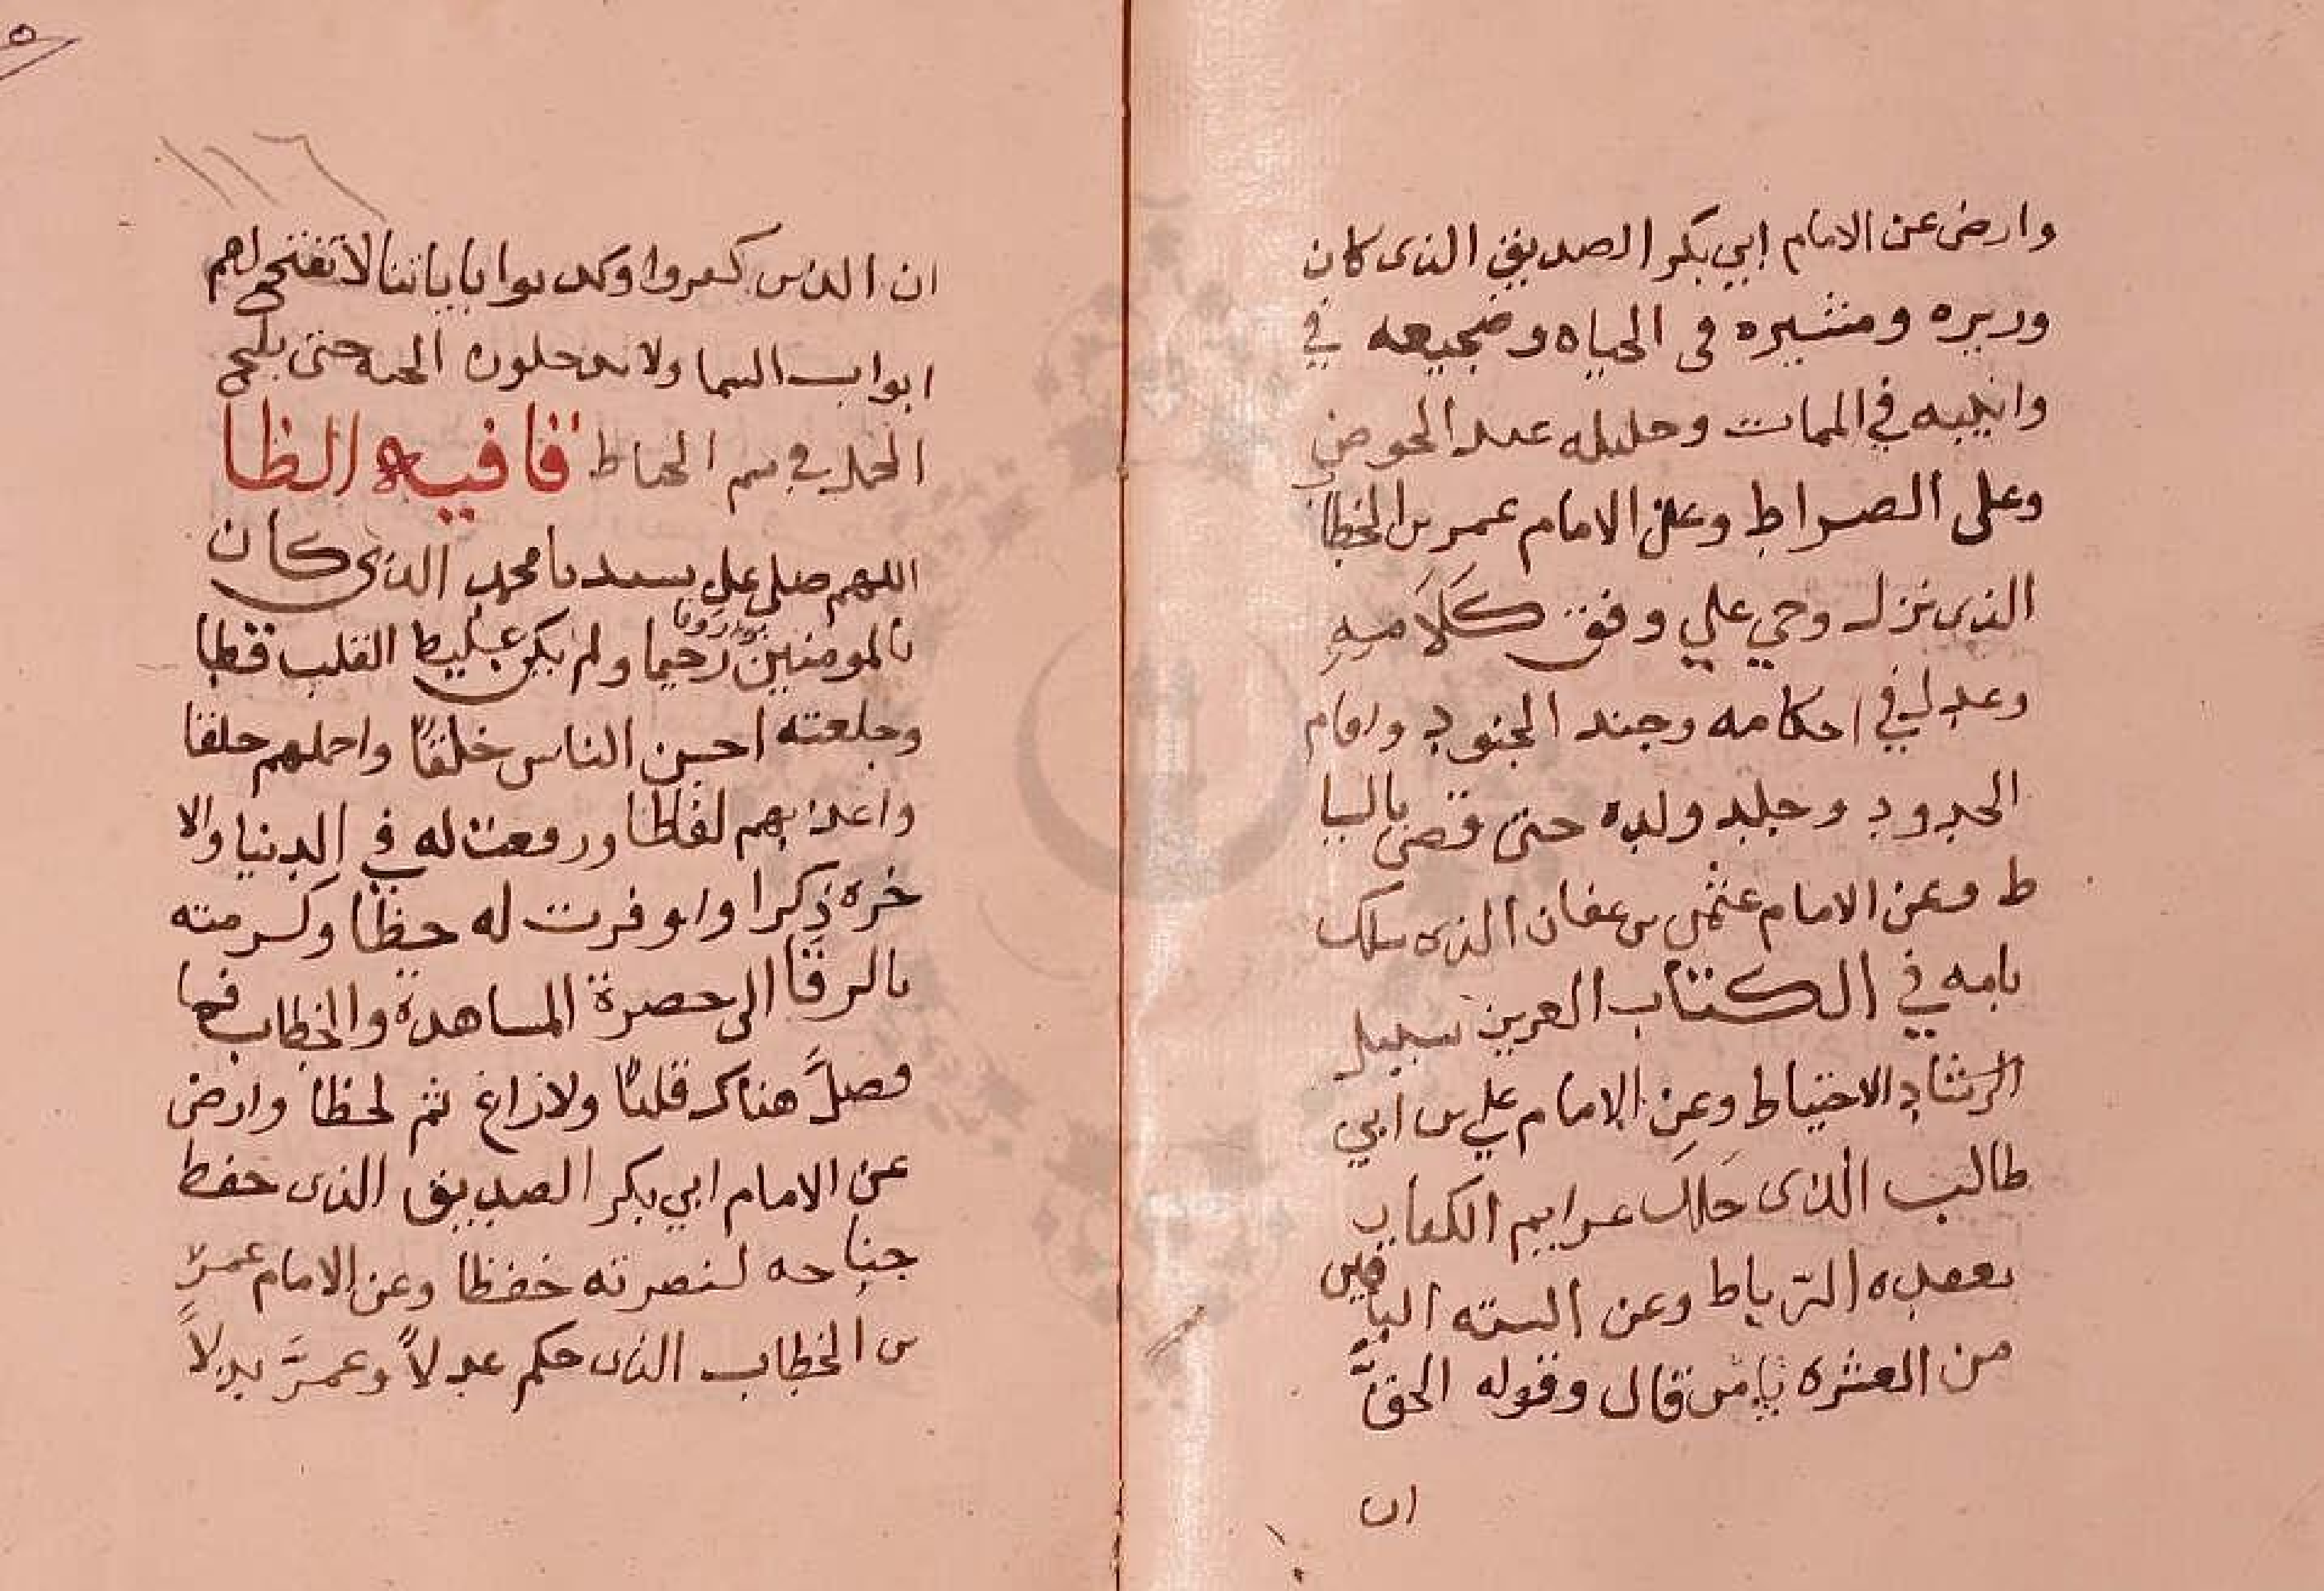 وارض عن الامام ابي بكر الصديق الذى كان
وزيره ومشيره فى الحياه وضجيعه في
وانيسه في الممات وخليله عند الحوض
وعلى الصراط وعن الامام عمر بن الخطاب
الذى نزل وحي علي وفق كَلَامِهِ
وعدل في احكامه وجند الجنود واقام
الحدود وجلد ولده حتى قضى بالسيا
ط وعن الامام عثمن بن عفان الذى سلك
بامه في الكتاب العزيز سبيل
الرشاد الاحتياط وعن الامام علي بن ابي
طالب الذى حَلَلَ عرايم الكفار
بعقده الرباط وعن الستة الباقين
من العشره يا من قال وقوله الحق
ان
١١٦
ان الذين كفروا وكذبوا باياتنا لا تفتح لهم
ابواب السما ولا يدخلون الجنه حتى يلج
الجمل في سم الخياط قافيه الظا
اللهم صلي على سيدنا محمد الذى كان
بالمومنين رحيما ولم يكن غليط القلب فظا
وجلعته احسن الناس خلقًا واجملهم خلقا
واعذبهم لفاظا ورفعت له في الدنيا والا
خره ذكرا واوفرت له حظا وكرمته
بالرقا الى حضرة المشاهدة والخطاب فما
ضلَّ هناك قلبًا ولا زاغ ثم لحظا وارض
عن الامام ابي بكر الصديق الذى خفظ
جناحه لنصرته خفظا وعن الامام عمر
بن الخطاب الذى حكم عدلاً وعمَّر بدلاً